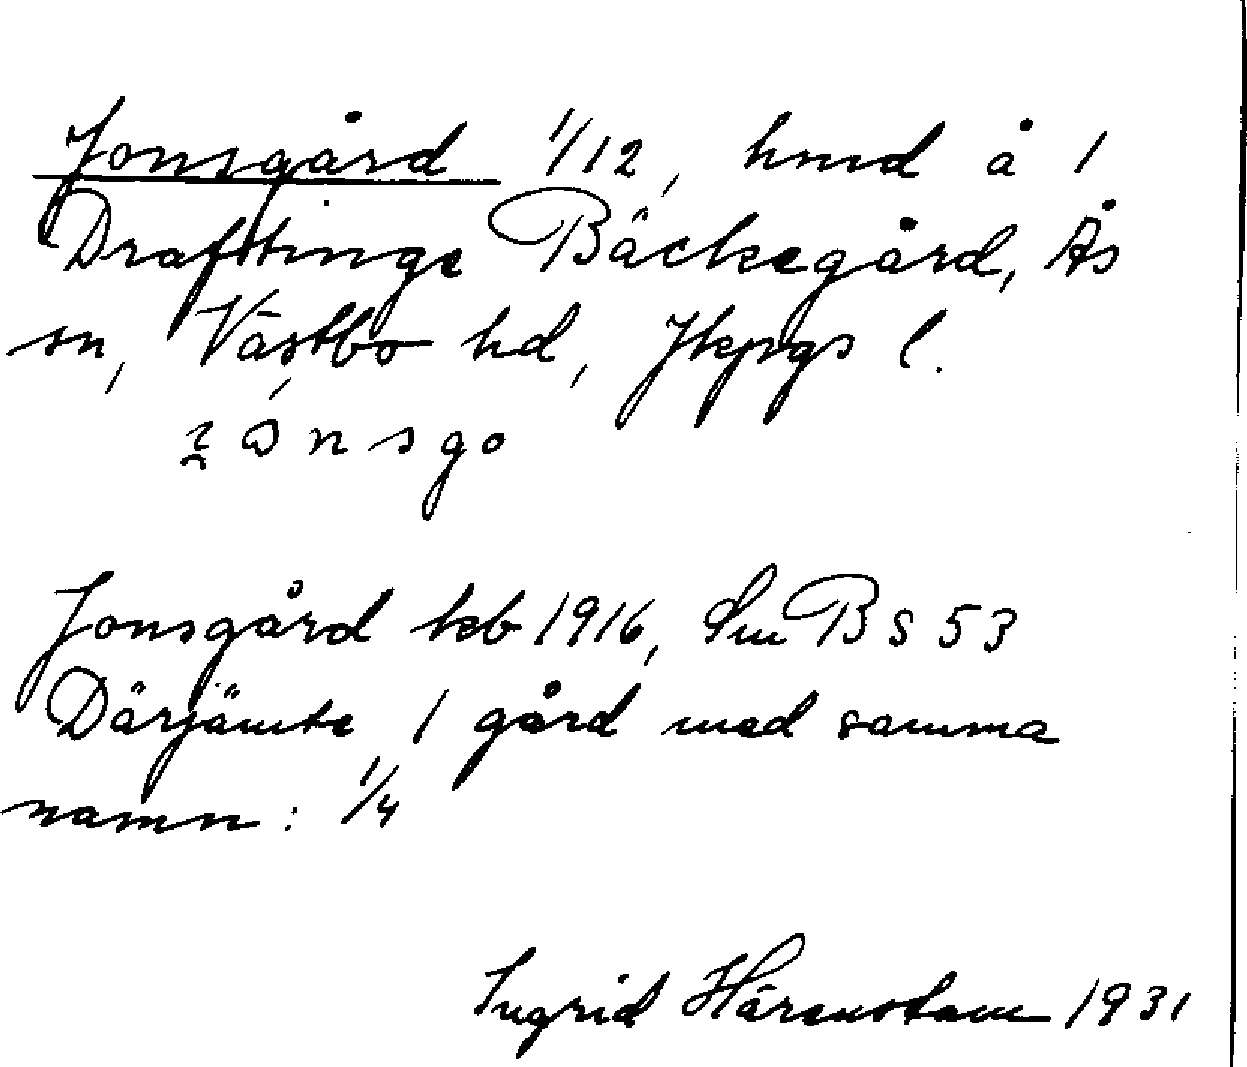 Jonsgård 1/12, hmd å 1
Draftinge Bäckegård, Ås
sn, Västbo hd, Jkpgs l.
nsgo
Jonsgård kb 1916, Sm B s 53
Därjämte 1 gård med samma
namn: 1/4
Ingrid Härenstam 1931